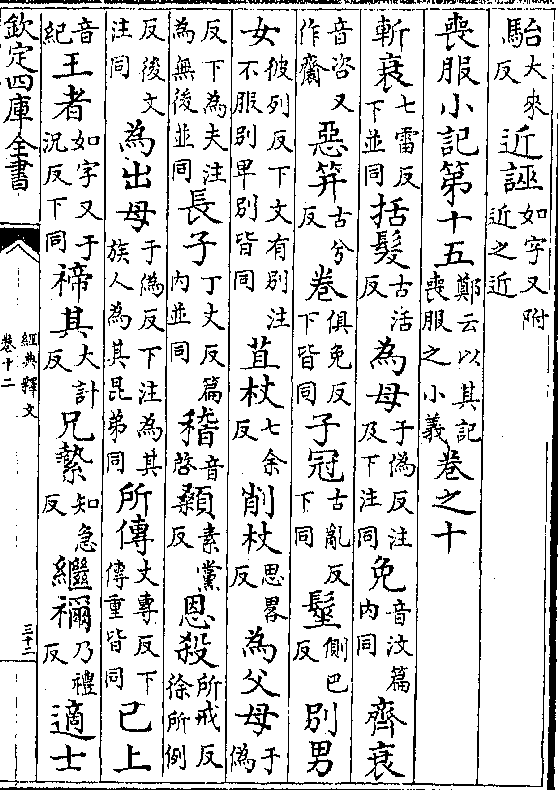 駘大來反近誣如字又附近之近
喪服小記第十五鄭云以其記喪服之小義卷之十
斬衰七雷反下並同括髮古活反為母于偽反注及下注同免音汶篇内同齊衰
音咨又作齋惡笄古兮反卷俱免反下皆同子冠古亂反下同髽側巴反別男
女彼列反下文有別注不服別卑別皆同苴杖七余反削杖思畧反為父母于偽
反下為夫注為無後並同長子丁丈反篇内並同稽音啓顙素黨反恩殺所戒反徐所例
反後文注同為出母于偽反下注為其族人為其昆弟同所傳丈專反下傳重皆同已上
音紀王者如字又于況反下同禘其大計反兄縶知急反繼禰乃禮反適士
欽定四庫全書
經典釋文
卷十二
三十二